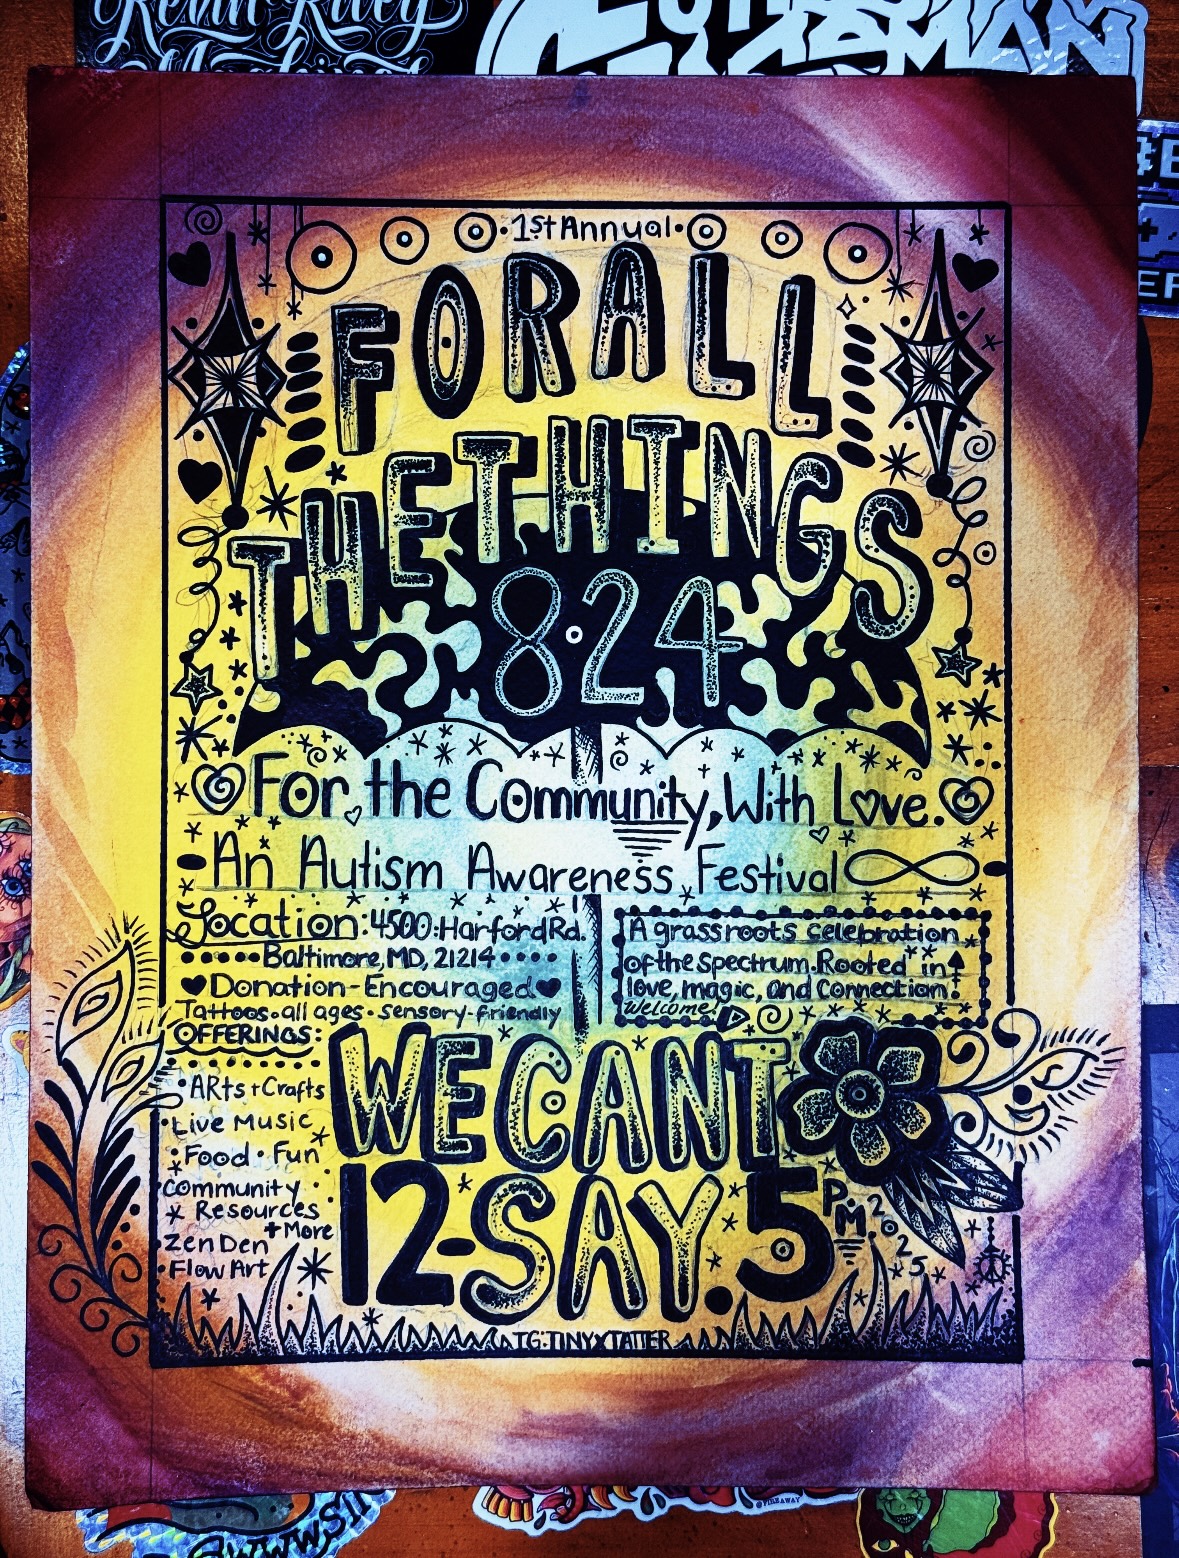 Kevin Riley
1st Annual
FOR ALL
THE THINGS
8.24
For the Community, With Love.
An Autism Awareness Festival
Location: 4500 Harford Rd.
Baltimore, MD, 21214
Donation-Encouraged
Tattoos · all ages · sensory-friendly
A grassroots celebration
of the spectrum. Rooted in
love, magic, and connection.
Welcome!
OFFERINGS:
ARts + Crafts
Live Music
Food · Fun
Community
Resources
+ More
Zen Den
Flow Art
WE CANT
SAY.
12-5 P.M.
2025
IG: TINYXTATTER